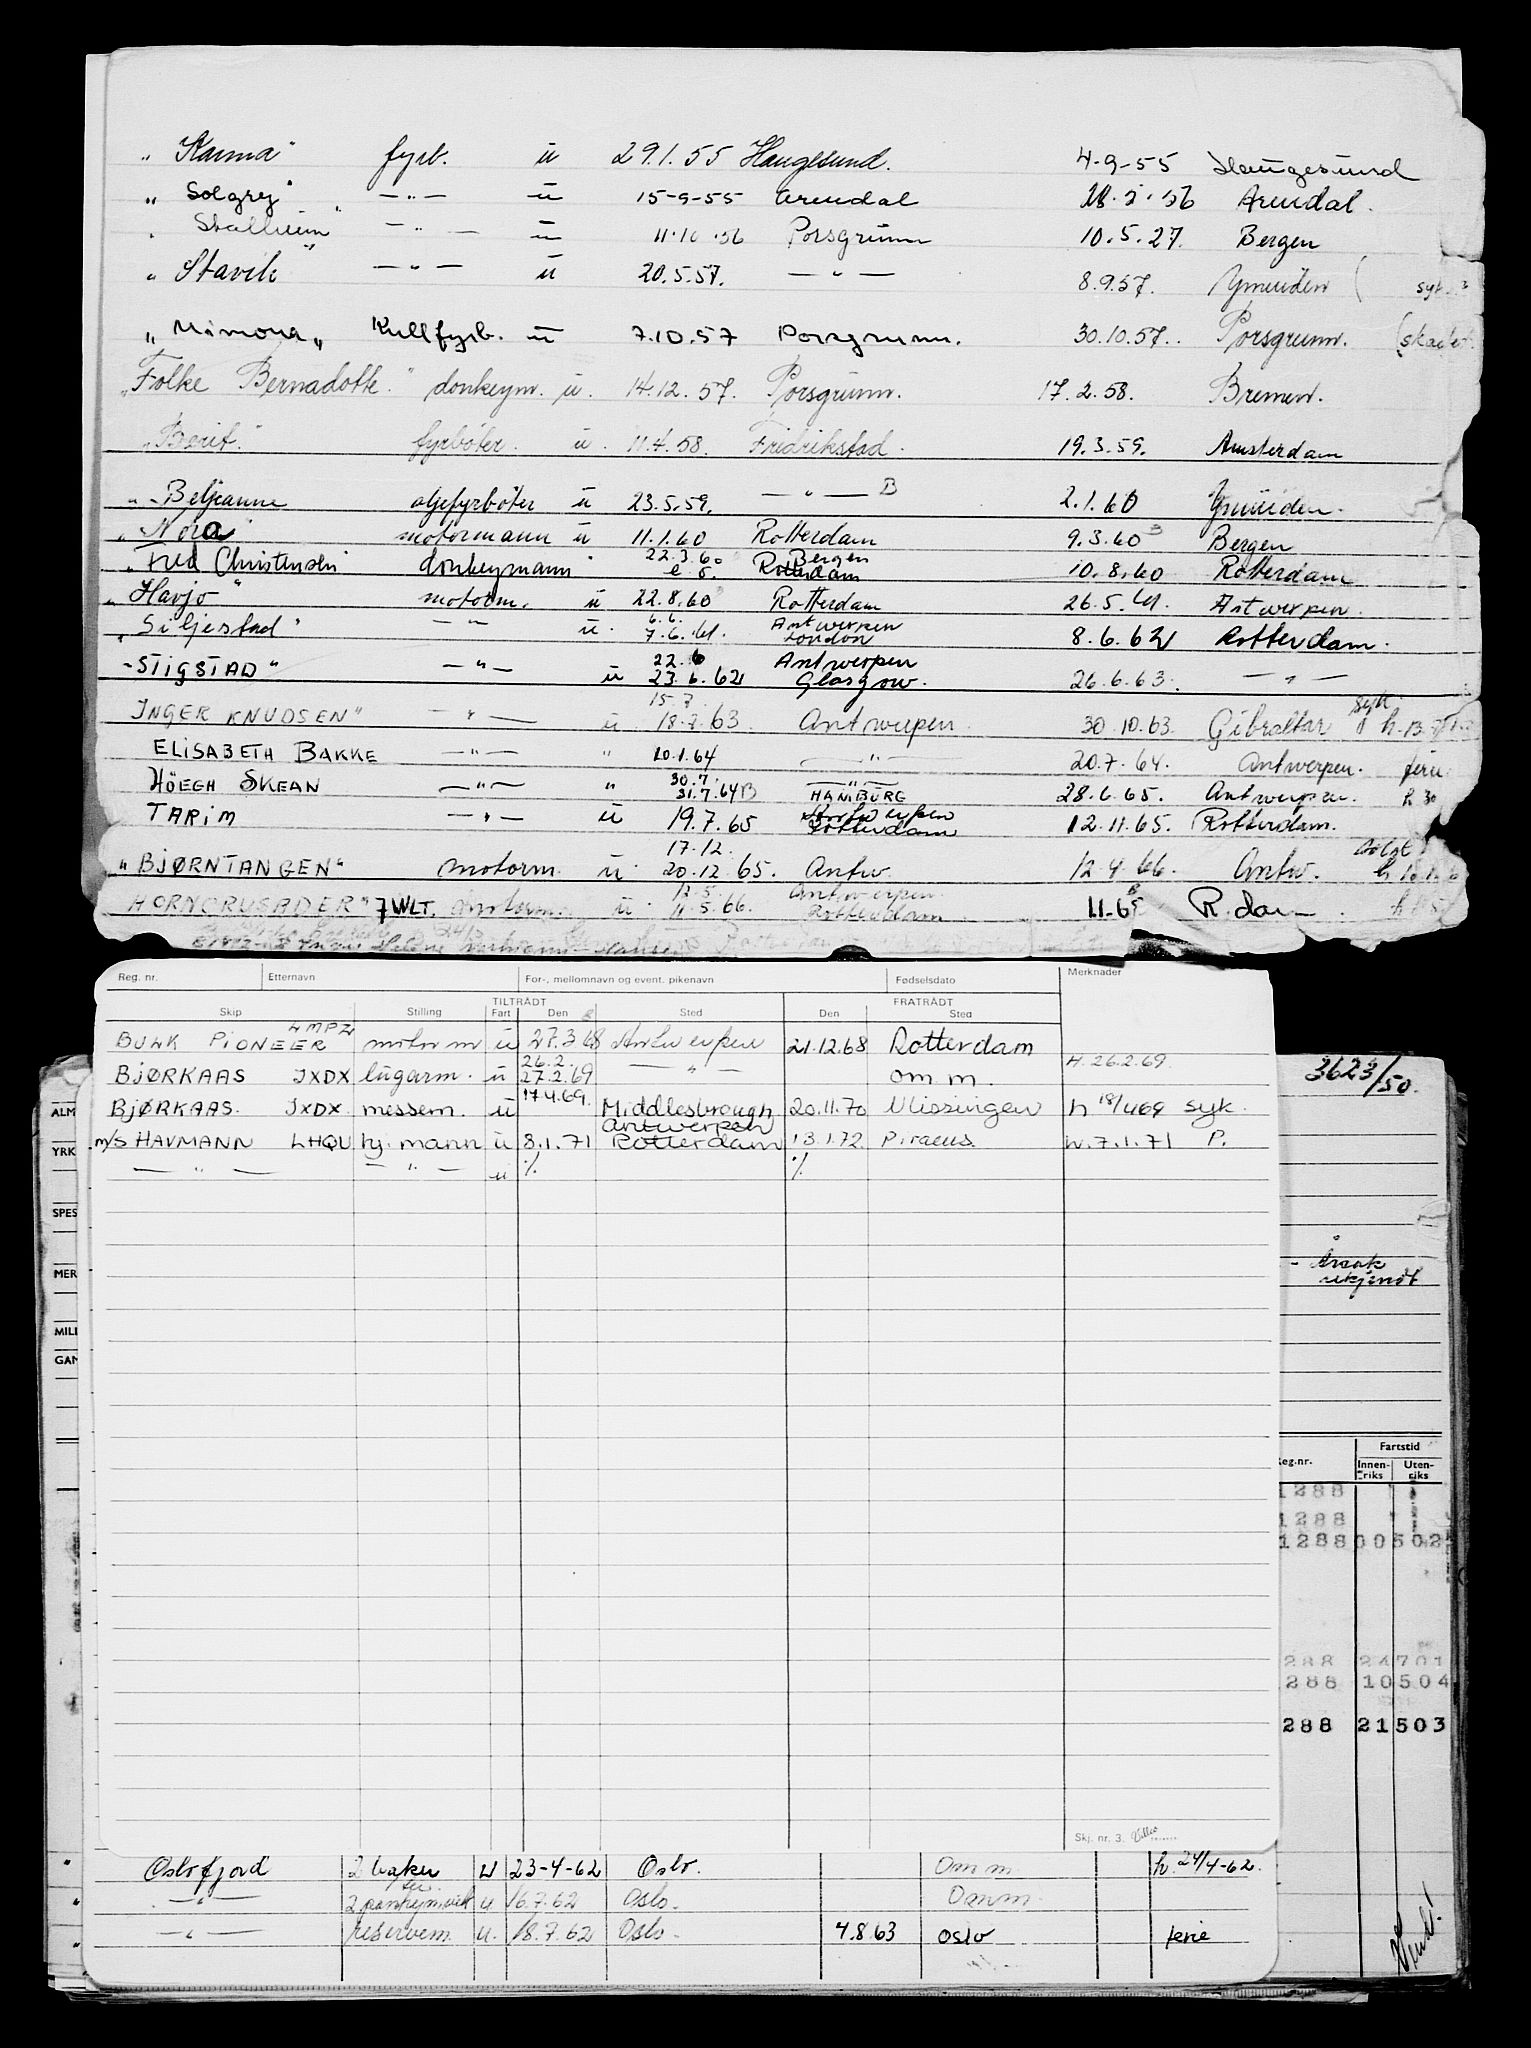 „ Karma" fyrb. ü 29.1.55 Haugesund. 4-9-55 Haugesund
„ Solgry" —"— ü 15-9-55 Arendal Arendal.
—"— ü 11.10.56 Porsgrunn 10.5.27. Bergen
„ Stavik" —"— ü 20.5.57. —"— 8.9.57. Ymuiden (
„ Mimona„ Kullfyrb. ü 7.10.57 Porsgrunn. 30.10.57. Porsgrunn.
„Folke Bernadotte." donkeym. u. 14.12.57. Porsgrunn. 17.2.58. Bremen.
„Berit." fyrbøter. ü. 11.4.58. Fridrikstad. 19.3.59. Amsterdam
„ Beljeanne oljefyrbøter ü 23.5.59. —"— B 2.1.60 Ymüiden.
„ Nora" motormann ü 11.1.60 Rotterdam 9.3.60 B Bergen
„ Fred Christensen donkeymann " 22.3.60 Bergen 10.8.60 Rotterdam
e. o. Rotterdam
„ Havjo" motorm. ü 22.8.60 Rotterdam 26.5.61. Antwerpen.
„ Siljestad" —"— ü. 6.6. Antwerpen
7.6.61. London 8.6.62 Rotterdam.
"STIGSTAD" —"— ü 22.6 Antwerpen
23.6.62 Glasgow. 26.6.63. —"—
INGER KNUDSEN" —"— u 15.7
18.7.63 Antwerpen. 30.10.63 Gibraltar syk
ELISABETH BAKKE —"— " 20.1.64 —"— 20.7.64. Antwerpen. ferie
HÖEGH SKEAN —"— " 30.7. —"—
31.7.64B HAMBURG 28.6.65. Antwerpen. h 30
TARIM —"— ü 19.7.65 Antwerpen
Rotterdam 12.11.65. Rotterdam.
„BJØRNTANGEN" motorm. u. 17.12.
20.12.65. Antw. 12.4.66. Antw.
HORNCRUSADER" 7 WLT. motorm. u. 12.5. Antwerpen
11.5.66. Rotterdam R.dam
Reg. nr. Etternavn For-, mellomnavn og event. pikenavn Fødselsdato Merknader
TILTRÅDT FRATRÅDT
Skip Stilling Fart Den Sted Den Sted
BULK PIONEER LMPZ motorm ü 27.3.68 Antwerpen 21.12.68 Rotterdam
BJØRKAAS JXDX lugarm. u 26.2.
27.2.69 —"— om m. H. 26.2.69.
BJØRKAAS. JXDX. messem. ü 17.4.69. Middlesbrough 20.11.70 Vlissingen h 18/4 69 syk.
Antwerpen
m/s HAVMANN LHQU hj. mann ü 8.1.71 Rotterdam 13.1.72. Piraeus. h. 7.1.71 P.
—"— —"— ü % %
Skj. nr. 3.
ALM
YRK
SPES
MER
MILI
GAN
3623/50.
- Årsak
ukjendt
Reg.nr. Fartstid
Innen-riks Uten-riks
1288
1288
1288 00502
288 24701
288 10504
288 21503
" Oslofjord 2 baker u 23-4-62 Oslo. Om m. h. 24/4-62.
" —"— u 16.7.62 Oslo. Omm.
" —"— reservem. u. 18.7.62 Oslo. 4.8.63 Oslo ferie
Vend!